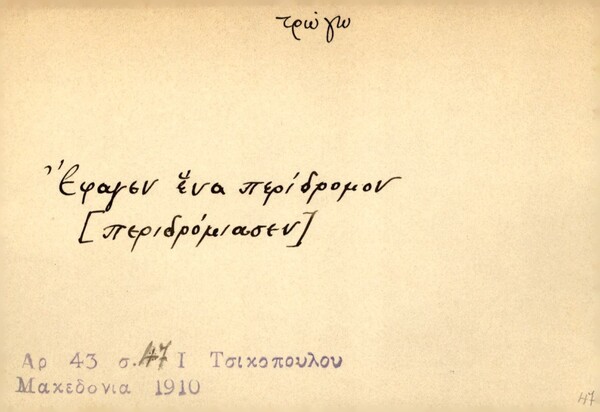 τρώγω
Ἔφαγεν ἕνα περίδρομον
[περιδρόμιασεν]
Αρ 43 σ. 47 Ι Τσικοπουλου
Μακεδονια 1910
47